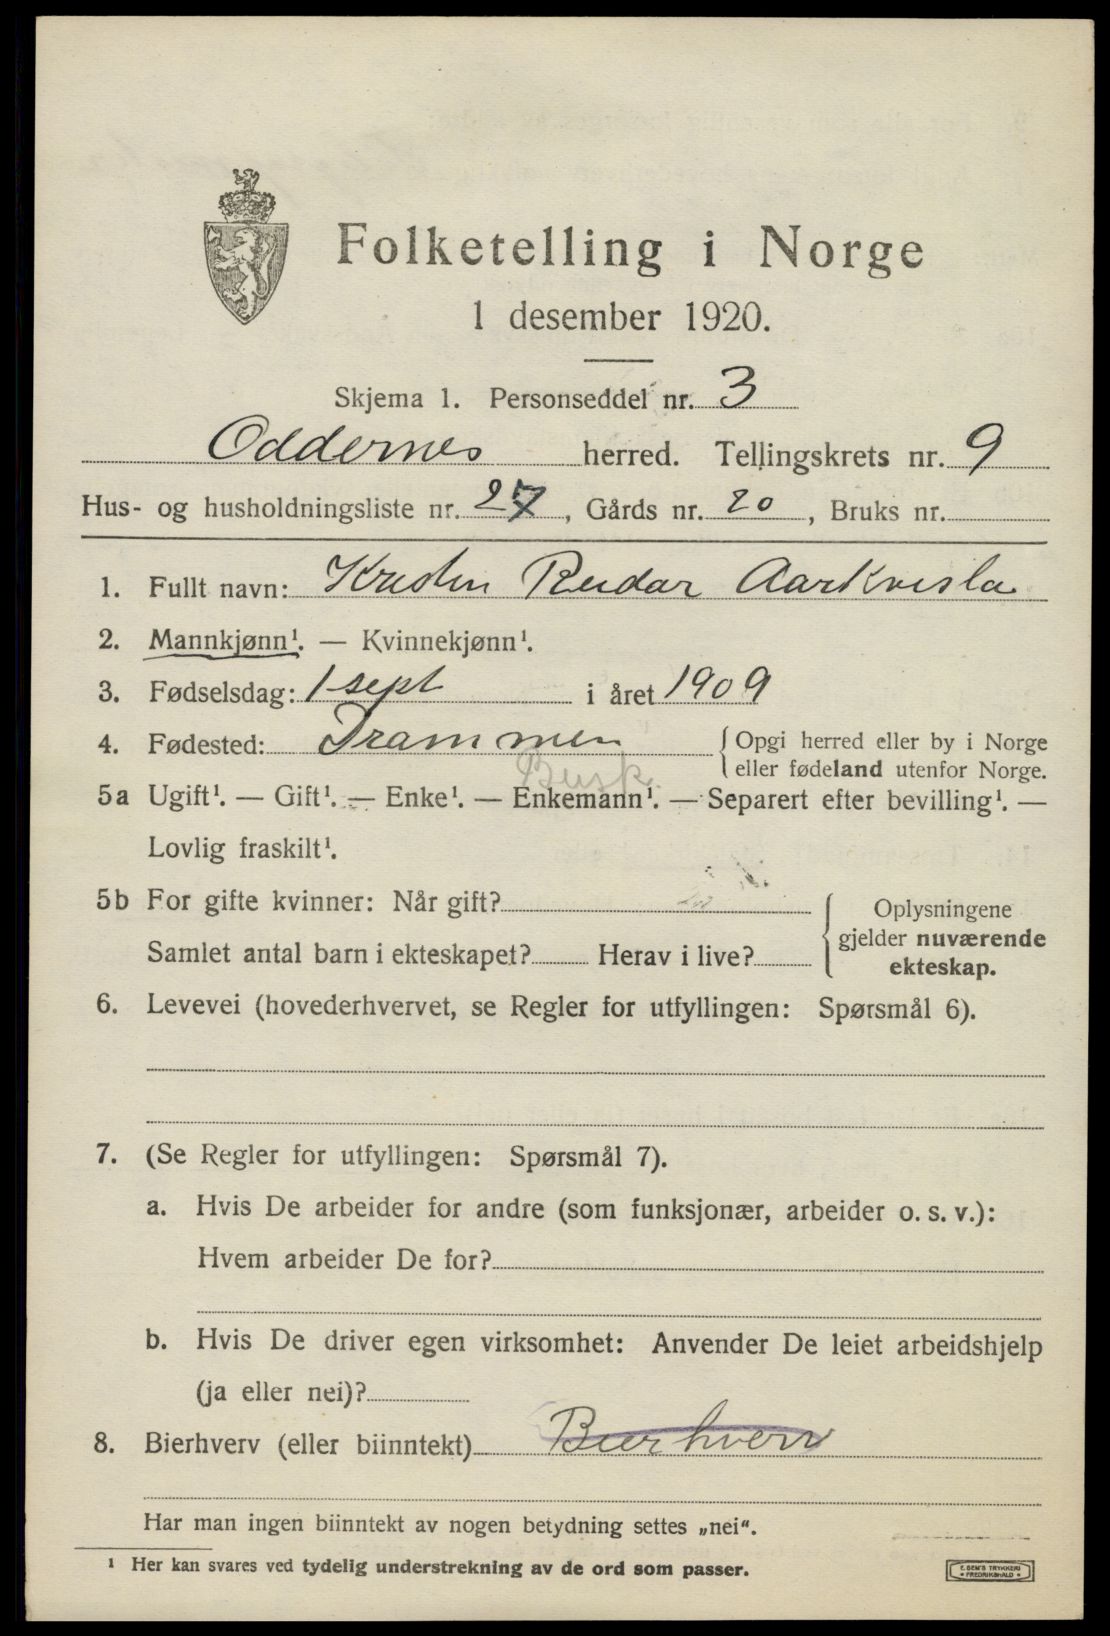 Folketelling i Norge
1 desember 1920.
Skjema 1. Personseddel nr. 3
Oddernes herred. Tellingskrets nr. 9
Hus- og husholdningsliste nr. 27, Gårds nr. 20, Bruks nr.
1. Fullt navn: Kristen Reidar Aarkvisla
2. Mannkjønn¹. — Kvinnekjønn¹.
3. Fødselsdag: 1 sept i året 1909
4. Fødested: Drammen { Opgi herred eller by i Norge
eller fødeland utenfor Norge.
Busk.
5a Ugift¹. — Gift¹. — Enke¹. — Enkemann¹. — Separert efter bevilling¹. —
Lovlig fraskilt¹.
5b For gifte kvinner: Når gift? { Oplysningene
gjelder nuværende
Samlet antal barn i ekteskapet? Herav i live?
ekteskap.
6. Levevei (hovederhvervet, se Regler for utfyllingen: Spørsmål 6).
7. (Se Regler for utfyllingen: Spørsmål 7).
a. Hvis De arbeider for andre (som funksjonær, arbeider o. s. v.):
Hvem arbeider De for?
b. Hvis De driver egen virksomhet: Anvender De leiet arbeidshjelp
(ja eller nei)?
8. Bierhverv (eller biinntekt) Bierhverv
Har man ingen biinntekt av nogen betydning settes „nei“.
¹ Her kan svares ved tydelig understrekning av de ord som passer.
E. SEM'S TRYKKERI
FREDRIKSHALD